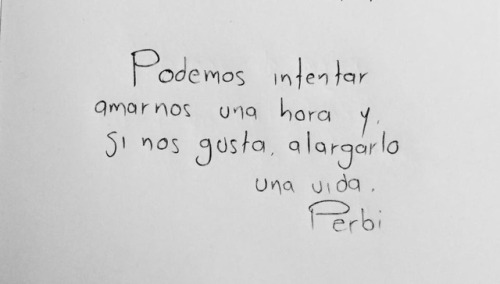 Podemos intentar
amarnos una hora y,
si nos gusta, alargarlo
una vida.
Perbi